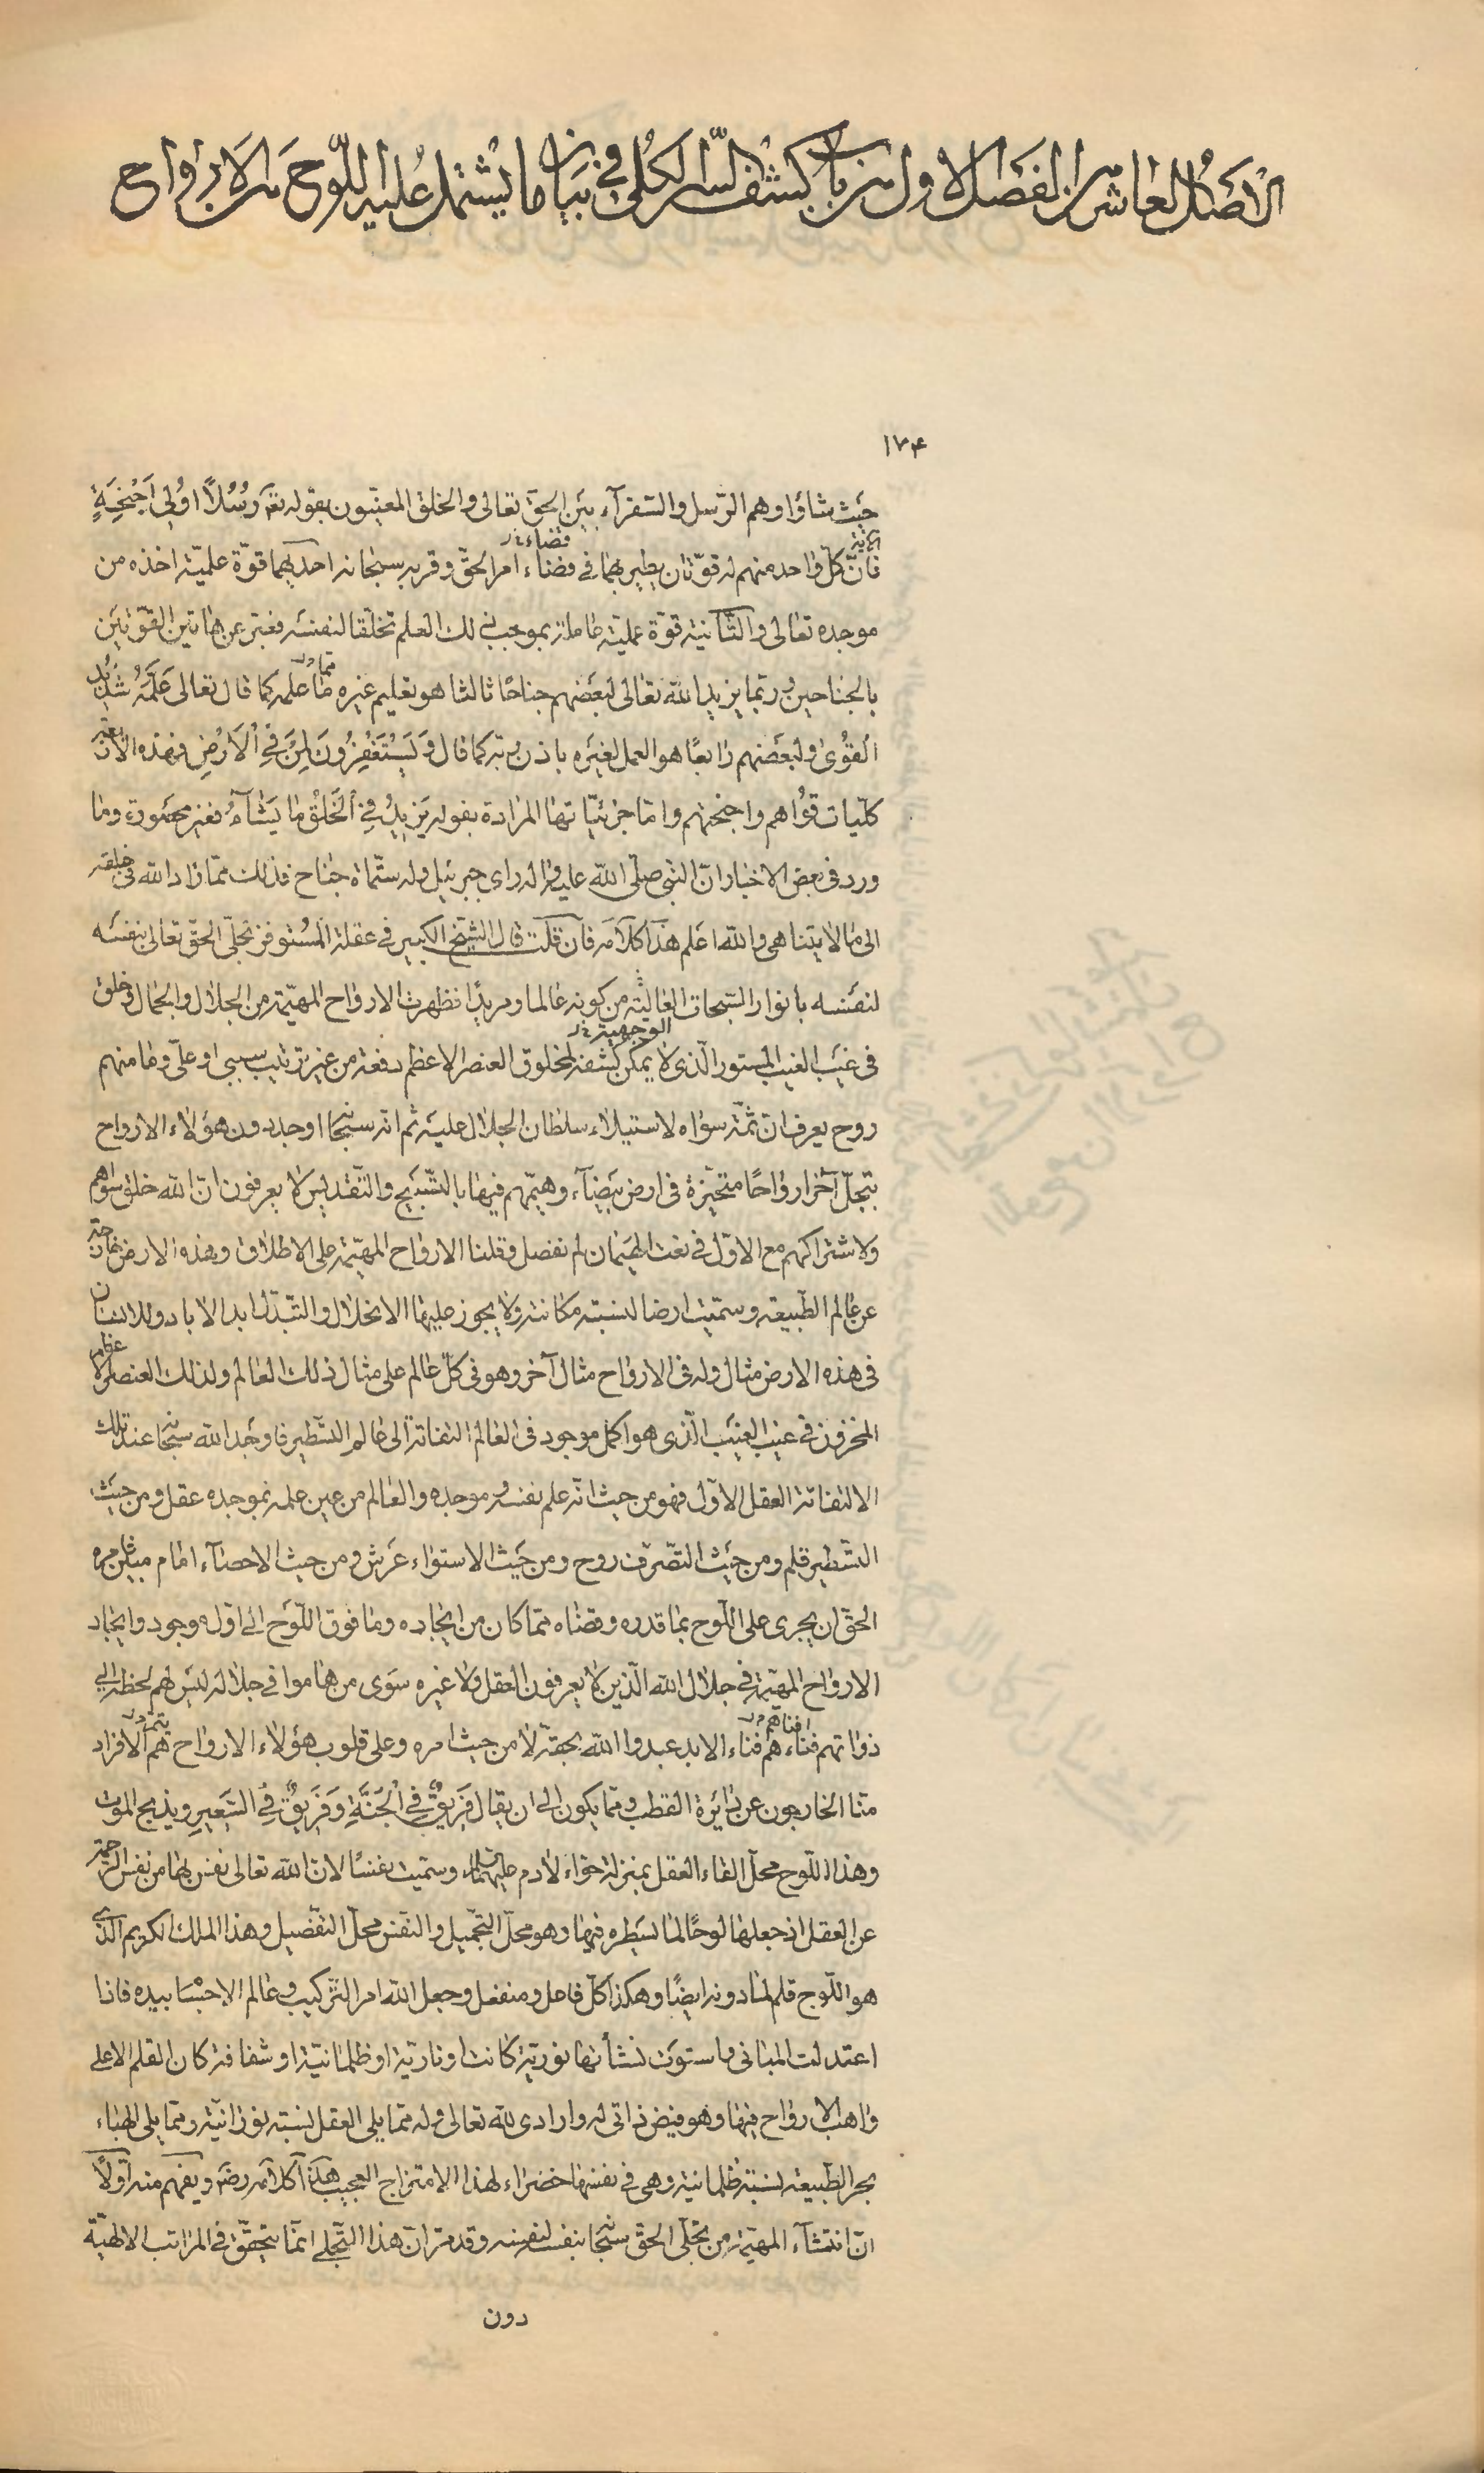 الاصل العاشر من الفصل الاول من باب كشف السر الكلى فى بيان ما يشتمل عليه اللوح من الارواح
١٧۴
حيث شاؤا وهم الرّسل والسّفرآء بين الحقّ تعالى والخلق المعنيّون بقوله تعم رُسُلًا اُولِى اَجْنِحَةٍ
الاية
فانّ كلّ واحد منهم له قوّتان يطير بهما فى فضاء امر الحقّ وقربه سبحانه احديهما قوّة علميّة اخذه من
فضاء
موجده تعالى والثّانية قوّة عمليّة عاملة بموجب ذلك العلم تخلّقا لنفسه فعبّر عن هاتين القوّتين
بالجناحين وربّما يزيد الله تعالى لبعضهم جناحًا ثالثا هو تعليم غيره ما علمه كما قال تعالى عَلَّمَهُ شَدِيدُ
ممّا
الْقُوٰى ولبعضهم رابعًا هو العمل لغيره باذن ربّه كما قال وَيَسْتَغْفِرُونَ لِمَنْ فِى الْاَرْضِ فهذه الاربعة
كلّيات قواهم واجنحتهم وامّا جزئيّاتها المرادة بقوله يَزِيدُ فِى الْخَلْقِ مَا يَشَآءُ فغير محصورة وما
ورد فى بعض الاخبار انّ النّبى صلّى الله عليه واله راى جبرئيل وله ستّمأة جناح فذلك ممّا زاد الله فى خلقه
الى ما لا يتناهى والله اعلم هذا كلامه فان قلت قال الشيخ الكبير فى عقلة المستوفز تجلّى الحقّ تعالى بنفسه
لنفسه بانوار السّبحات الغالبة من كونه عالما ومريدًا فظهرت الارواح المهيّمة من الجلال والجمال وخلق
الوجهية
فى غيب الغيب المستور الّذى لا يمكن كشفه لمخلوق العنصر الاعظم دفعة من غير ترتيب سببى او علّى وما منهم
روح يعرف انّ ثمّة سواه لاستيلاء سلطان الجلال عليه ثم انّه سبحانه اوجد دون هؤلاء الارواح
بتجلّ آخر ارواحًا متحيّزة فى ارض بيضآء وهيّمهم فيها بالتّسبيح والتّقديس لا يعرفون انّ الله خلق سواهم
ولاشتراكهم مع الاوّل فى نعت الهيمان لم نفصل وقلنا الارواح المهيّمة على الاطلاق وهذه الارض خارجة
عن عالم الطّبيعة وسمّيت ارضا لنسبة مكانيّة ولا يجوز عليها الانحلال والتّبدّل ابد الاباد وللانسان
فى هذه الارض مثال وله فى الارواح مثال آخر وهو فى كلّ عالم على مثال ذلك العالم ولذلك العنصر الاعظم
المخزون فى غيب الغيب الّذى هو اكمل موجود فى العالم التفاتة الى عالم التّسطير فاوجد الله سبحانه عند تلك
الالتفاتة العقل الاوّل فهو من حيث انّه علم نفسه وموجده والعالم من عين علمه بموجده عقل ومن حيث
التّسطير قلم ومن حيث التّصرّف روح ومن حيث الاستواء عرش ومن حيث الاحصآء امام مبين مره
الحقّ ان يجرى على اللّوح بما قدره وقضاه ممّا كان من ايجاده وما فوق اللّوح الى اوّل موجود وايجاد
الارواح المهيّمة فى جلال الله الّذين لا يعرفون العقل ولا غيره سوى من هاموا فى جلاله ليس لهم لحظة الى
افناهم
ذواتهم فناءهم فناء الابد عبدوا الله بحقّه لا من حيث امره وعلى قلوب هؤلاء الارواح هم الافراد
منّا الخارجون عن دائرة القطب وممّا يكون الى ان يقال فَرِيقٌ فِى الْجَنَّةِ وَفَرِيقٌ فِى السَّعِيرِ ويذبح الموت
وهذا اللّوح محلّ القاء العقل بمنزلة حواء لادم عليهما السلام وسمّيت نفسًا لانّ الله تعالى نفس بها من نفس الرّحمة
عن العقل اذ جعلها لوحًا لما يسطره فيها وهو محلّ التّجميل والنّفس محلّ التّفصيل وهذا الملك الكريم الّذى
هو اللّوح قلم لما دونه ايضًا وهكذا كلّ فاعل ومنفعل وجعل الله امر التّركيب وعالم الاجسام بيده فاذا
اعتدلت المبانى واستوت نشأتها نوريّة كانت او ناريّة او ظلمانيّة او شفافة كان القلم الاعلى
واهب الارواح فيها وهو فيض ذاتى له وارادى لله تعالى وله ممّا يلى العقل نسبة نورانيّة وممّا يلى الهباء
بحر الطّبيعة نسبة ظلمانية وهى فى نفسها خضراء لهذا الامتزاج العجيب هكذا كلامه رضه ويفهم منه اوّلًا
انّ انتشآء المهيّمة من تجلّى الحقّ سبحانه بنفسه لنفسه وقد مرّ انّ هذا التّجلى انّما يتحقّق فى المراتب الالهيّة
دون